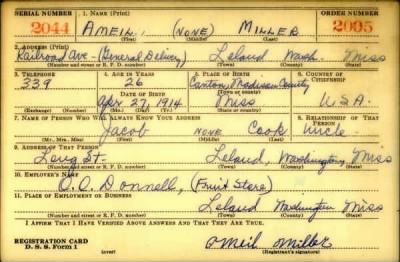 SERIAL NUMBER 1. NAME (Print) ORDER NUMBER
2044 AMEIL. (NONE) MILLER 2005
(First) (Middle) (Last)
2. ADDRESS (Print)
Railroad Ave- (General Delivery) Leland Wash. Miss
(Number and street or R. F. D. number) (Town) (County) (State)
3. TELEPHONE 4. AGE IN YEARS 5. PLACE OF BIRTH 6. COUNTRY OF CITIZENSHIP
339 26 Canton, Madison County,
DATE OF BIRTH (Town or county)
Apr 27, 1914 Miss U.S.A.
(Exchange) (Number) (Mo.) (Day) (Yr.) (State or country)
7. NAME OF PERSON WHO WILL ALWAYS KNOW YOUR ADDRESS 8. RELATIONSHIP OF THAT PERSON
Jacob NONE Cook Uncle
(Mr., Mrs., Miss) (First) (Middle) (Last)
9. ADDRESS OF THAT PERSON
St- Leland, Washington, Miss
(Number and street or R. F. D. number) (Town) (County) (State)
10. EMPLOYER'S NAME
O. O. Donnell, (Fruit Store)
11. PLACE OF EMPLOYMENT OR BUSINESS
Leland Washington Miss
(Number and street or R. F. D. number) (Town) (County) (State)
I AFFIRM THAT I HAVE VERIFIED ABOVE ANSWERS AND THAT THEY ARE TRUE.
REGISTRATION CARD
D. S. S. Form 1 (over) Ameil Miller
(Registrant's signature)